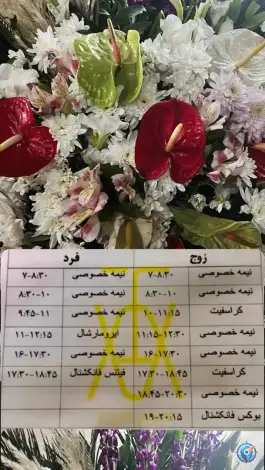 زوج فرد
نیمه خصوصی ۷-۸:۳۰ نیمه خصوصی ۷-۸:۳۰
نیمه خصوصی ۸:۳۰-۱۰ نیمه خصوصی ۸:۳۰-۱۰
کراسفیت ۱۰-۱۱:۱۵ نیمه خصوصی ۹:۴۵-۱۱
نیمه خصوصی ۱۱:۱۵-۱۲:۳۰ ایرومارشال ۱۱-۱۲:۱۵
نیمه خصوصی ۱۶-۱۷:۳۰ نیمه خصوصی ۱۶-۱۷:۳۰
کراسفیت ۱۷:۳۰-۱۸:۴۵ فیتنس فانکشنال ۱۷:۳۰-۱۸:۴۵
نیمه خصوصی ۱۸:۴۵-۲۰:۳۰
بوکس فانکشنال ۱۹-۲۰:۱۵